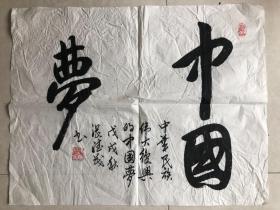 中國
夢
中華民族
偉大復興
的中國夢
戊戌秋